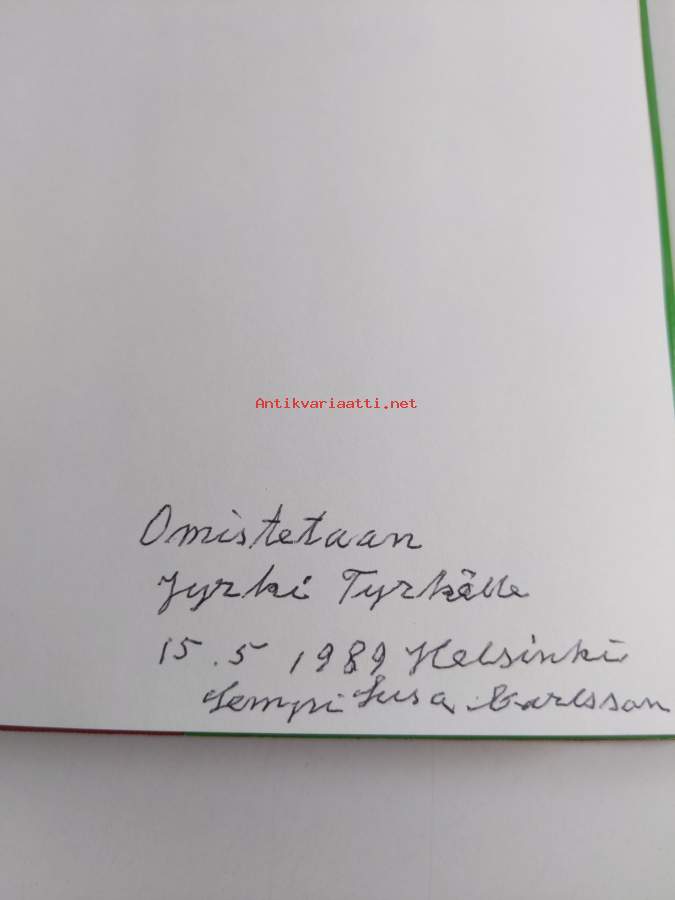 Antikvariaatti.net
Omistetaan
Jyrki Tyrkölle
15.5 1989 Helsinki
Carlsson